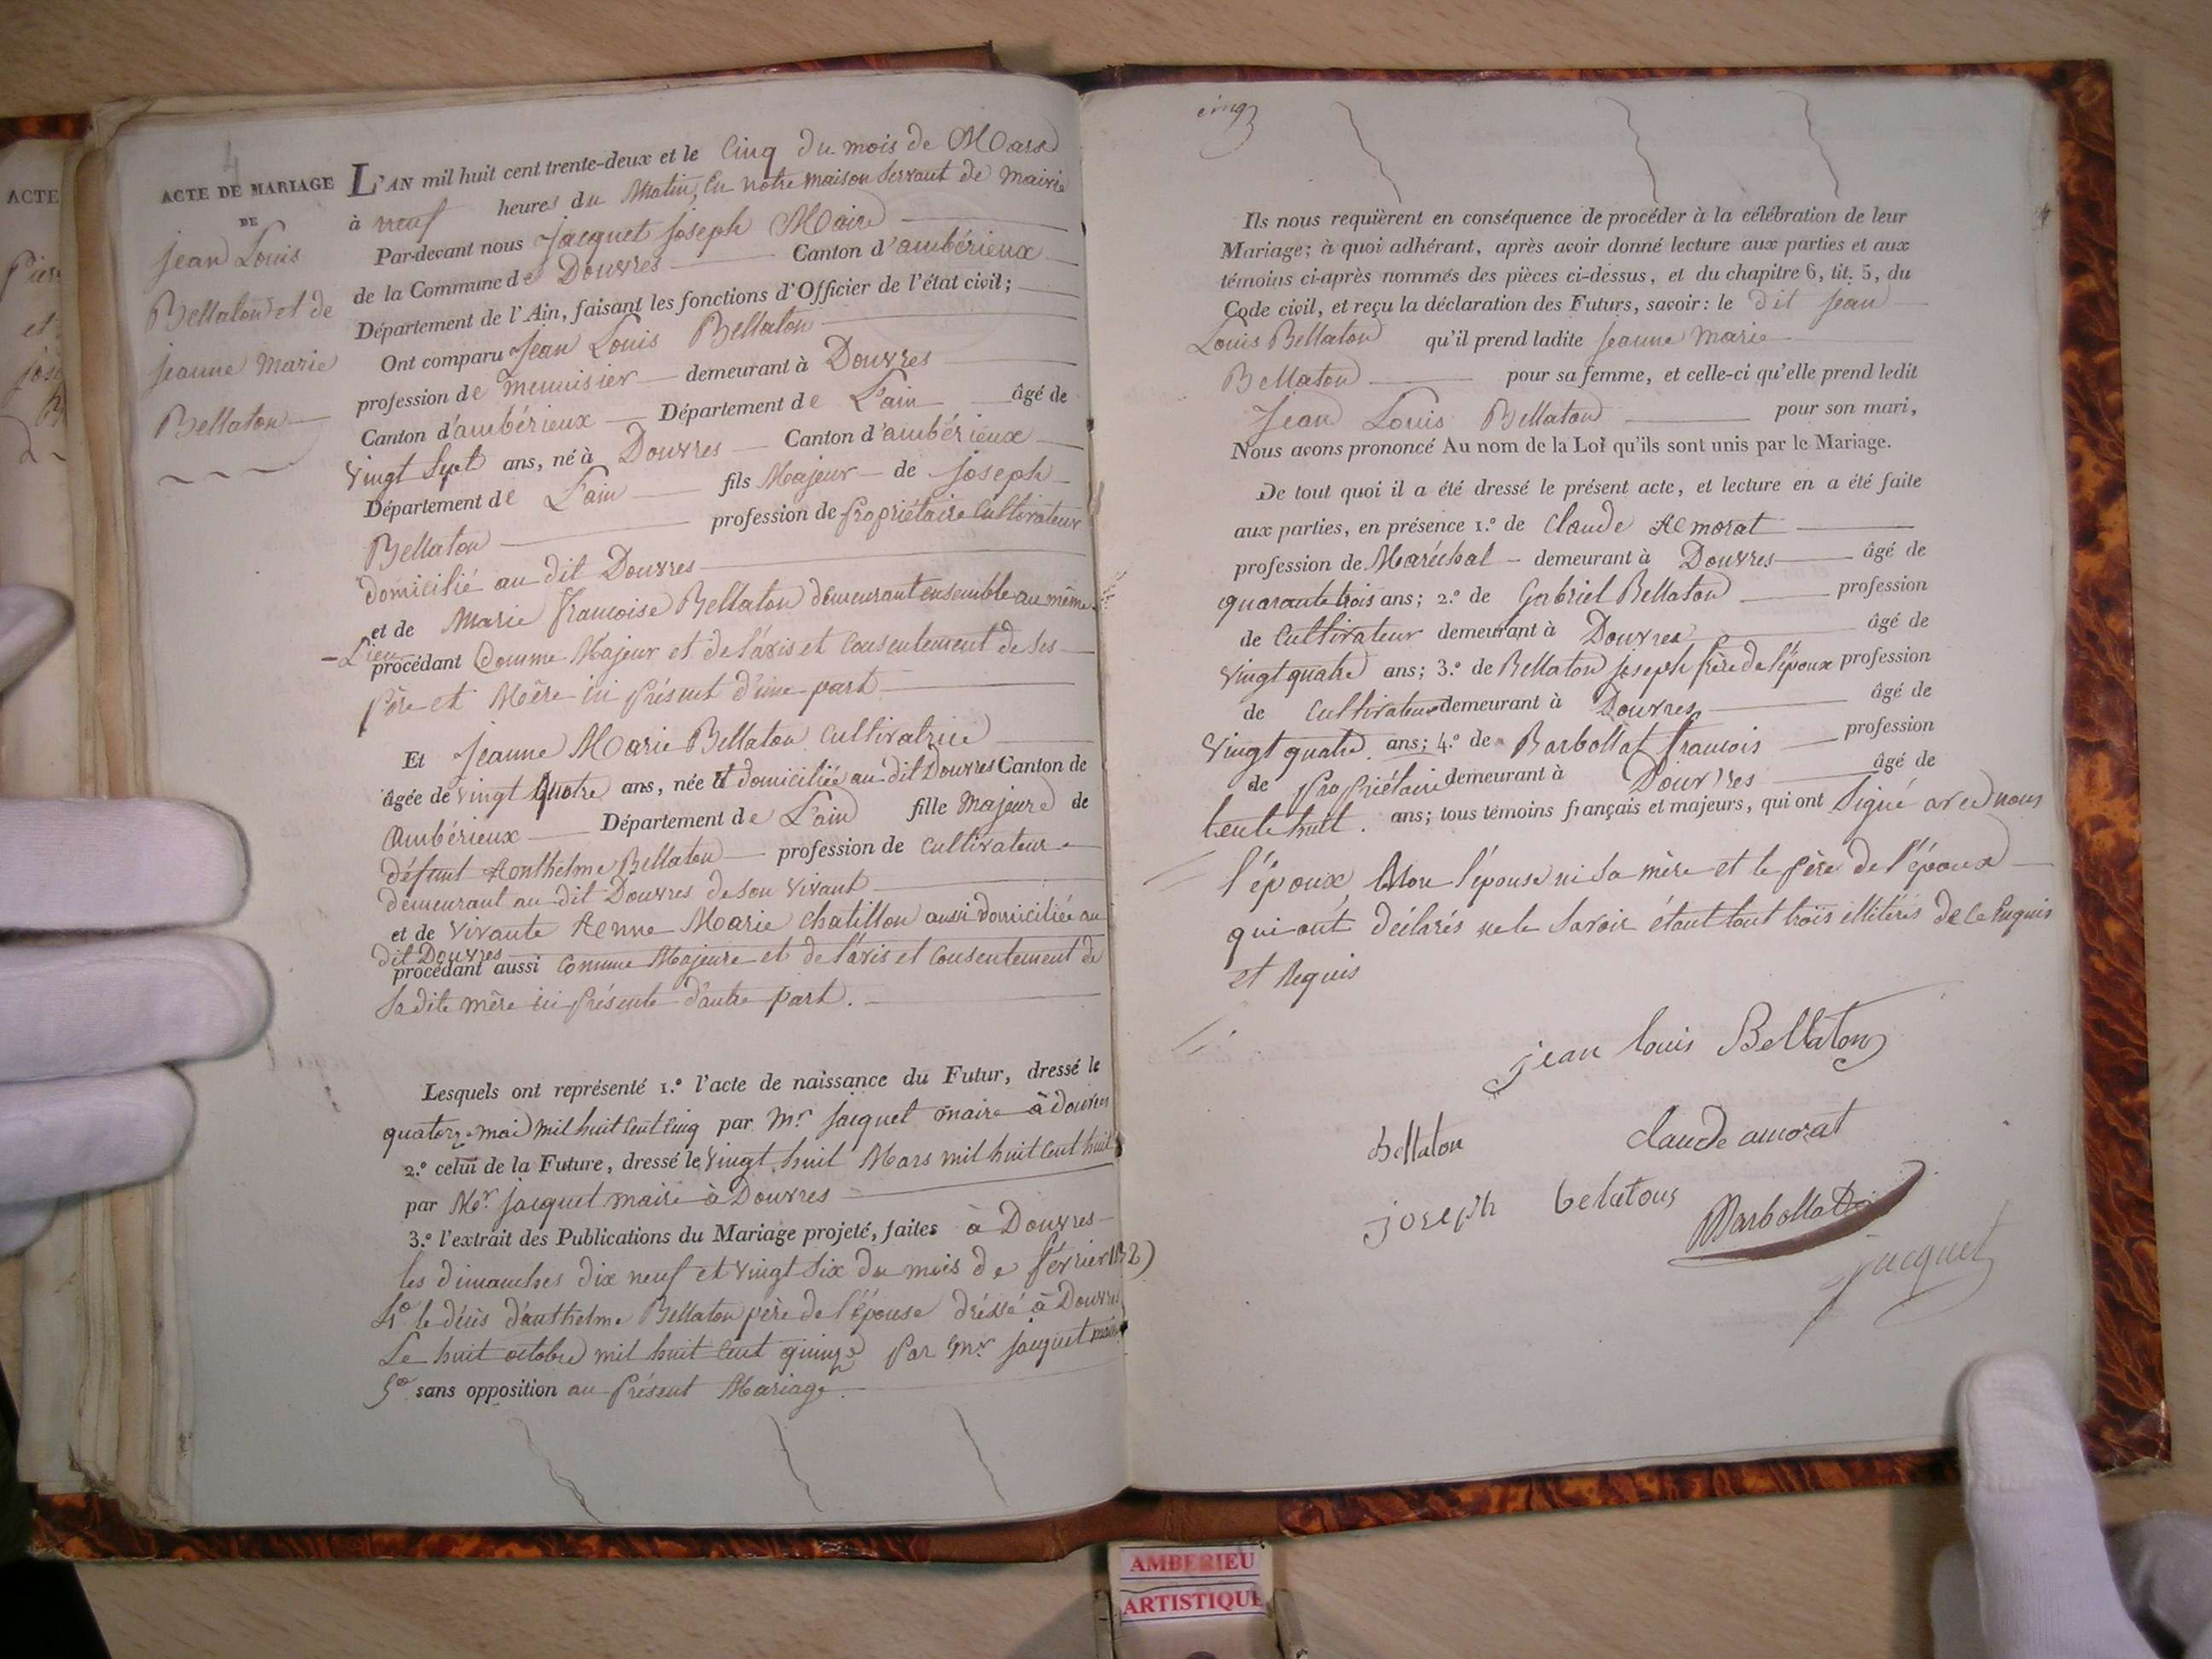 ACTE
et
4
ACTE DE MARIAGE
DE
Jean Louis
Bellaton et de
Jeanne Marie
Bellaton
L'AN mil huit cent trente-deux et le Cinq du mois de Mars
à neuf heures du Matin, En notre maison Servant de Mairie
Par-devant nous Jacquet Joseph Maire
de la Commune de Douvres Canton d'ambérieux
Département de l'Ain, faisant les fonctions d'Officier de l'état civil;
Ont comparu Jean Louis Bellaton
profession de menuisier demeurant à Douvres
Canton d'ambérieux Département de L'ain âgé de
Vingt Sept ans, né à Douvres Canton d'ambérieux
Département de L'ain fils Majeur de Joseph
Bellaton profession de propriétaire Cultivateur
domicilié au dit Douvres
et de Marie francoise Bellaton demeurant ensemble au même
Lieu
procédant Comme Majeur et de l'avis et Consentement de Ses
père et Mère ici présent d'une part
Et Jeanne Marie Bellaton Cultivatrice
âgée de Vingt Quatre ans, née et domiciliée au dit Douvres Canton de
Ambérieux Département de L'ain fille Majeure de
défunt Anthelme Bellaton profession de Cultivateur
demeurant au dit Douvres de son vivant
et de vivante Anne Marie Chatillon aussi domiciliée au
dit Douvres
procédant aussi Comme Majeure et de l'avis et Consentement de
Sa dite mère ici présente d'autre part.
Lesquels ont représenté 1.º l'acte de naissance du Futur, dressé le
quatorze mai mil huit Cent Cinq par Mr Jacquet maire à Douvres
2.º celui de la Future, dressé le Vingt huit Mars mil huit Cent huit
par Mr Jacquet maire à Douvres
3.º l'extrait des Publications du Mariage projeté, faites à Douvres
les dimanches dix neuf et vingt Six du mois de février 1832
4º le décès d'anthelme Bellaton père de l'épouse dréssé à Douvres
Le huit octobre mil huit Cent quinze par Mr Jacquet maire
5º sans opposition au présent Mariage
cinq
Ils nous requièrent en conséquence de procéder à la célébration de leur
Mariage; à quoi adhérant, après avoir donné lecture aux parties et aux
témoins ci-après nommés des pièces ci-dessus, et du chapitre 6, tit. 5, du
Code civil, et reçu la déclaration des Futurs, savoir: le dit Jean
Louis Bellaton qu'il prend ladite Jeanne Marie
Bellaton pour sa femme, et celle-ci qu'elle prend ledit
Jean Louis Bellaton pour son mari,
Nous avons prononcé Au nom de la Loi qu'ils sont unis par le Mariage.
De tout quoi il a été dressé le présent acte, et lecture en a été faite
aux parties, en présence 1.º de Claude Amorat
profession de Maréchal demeurant à Douvres âgé de
quarante trois ans; 2.º de Gabriel Bellaton profession
de Cultivateur demeurant à Douvres âgé de
Vingt quatre ans; 3.º de Bellaton Joseph frère de l'époux profession
de Cultivateur demeurant à Douvres âgé de
Vingt quatre ans; 4.º de Barbollat francois profession
de Propriétaire demeurant à Douvres âgé de
trente huit. ans; tous témoins français et majeurs, qui ont Signé avec nous
l'époux, Non l'épouse ni Sa mère et le père de l'époux
qui ont déclarés ne le Savoir étant tout trois illitérés de ce Enquis
et Requis
jean louis Bellaton
Bellaton claude amorat
joseph belatous Barbollat
Jacquet
AMBERIEU
ARTISTIQUE